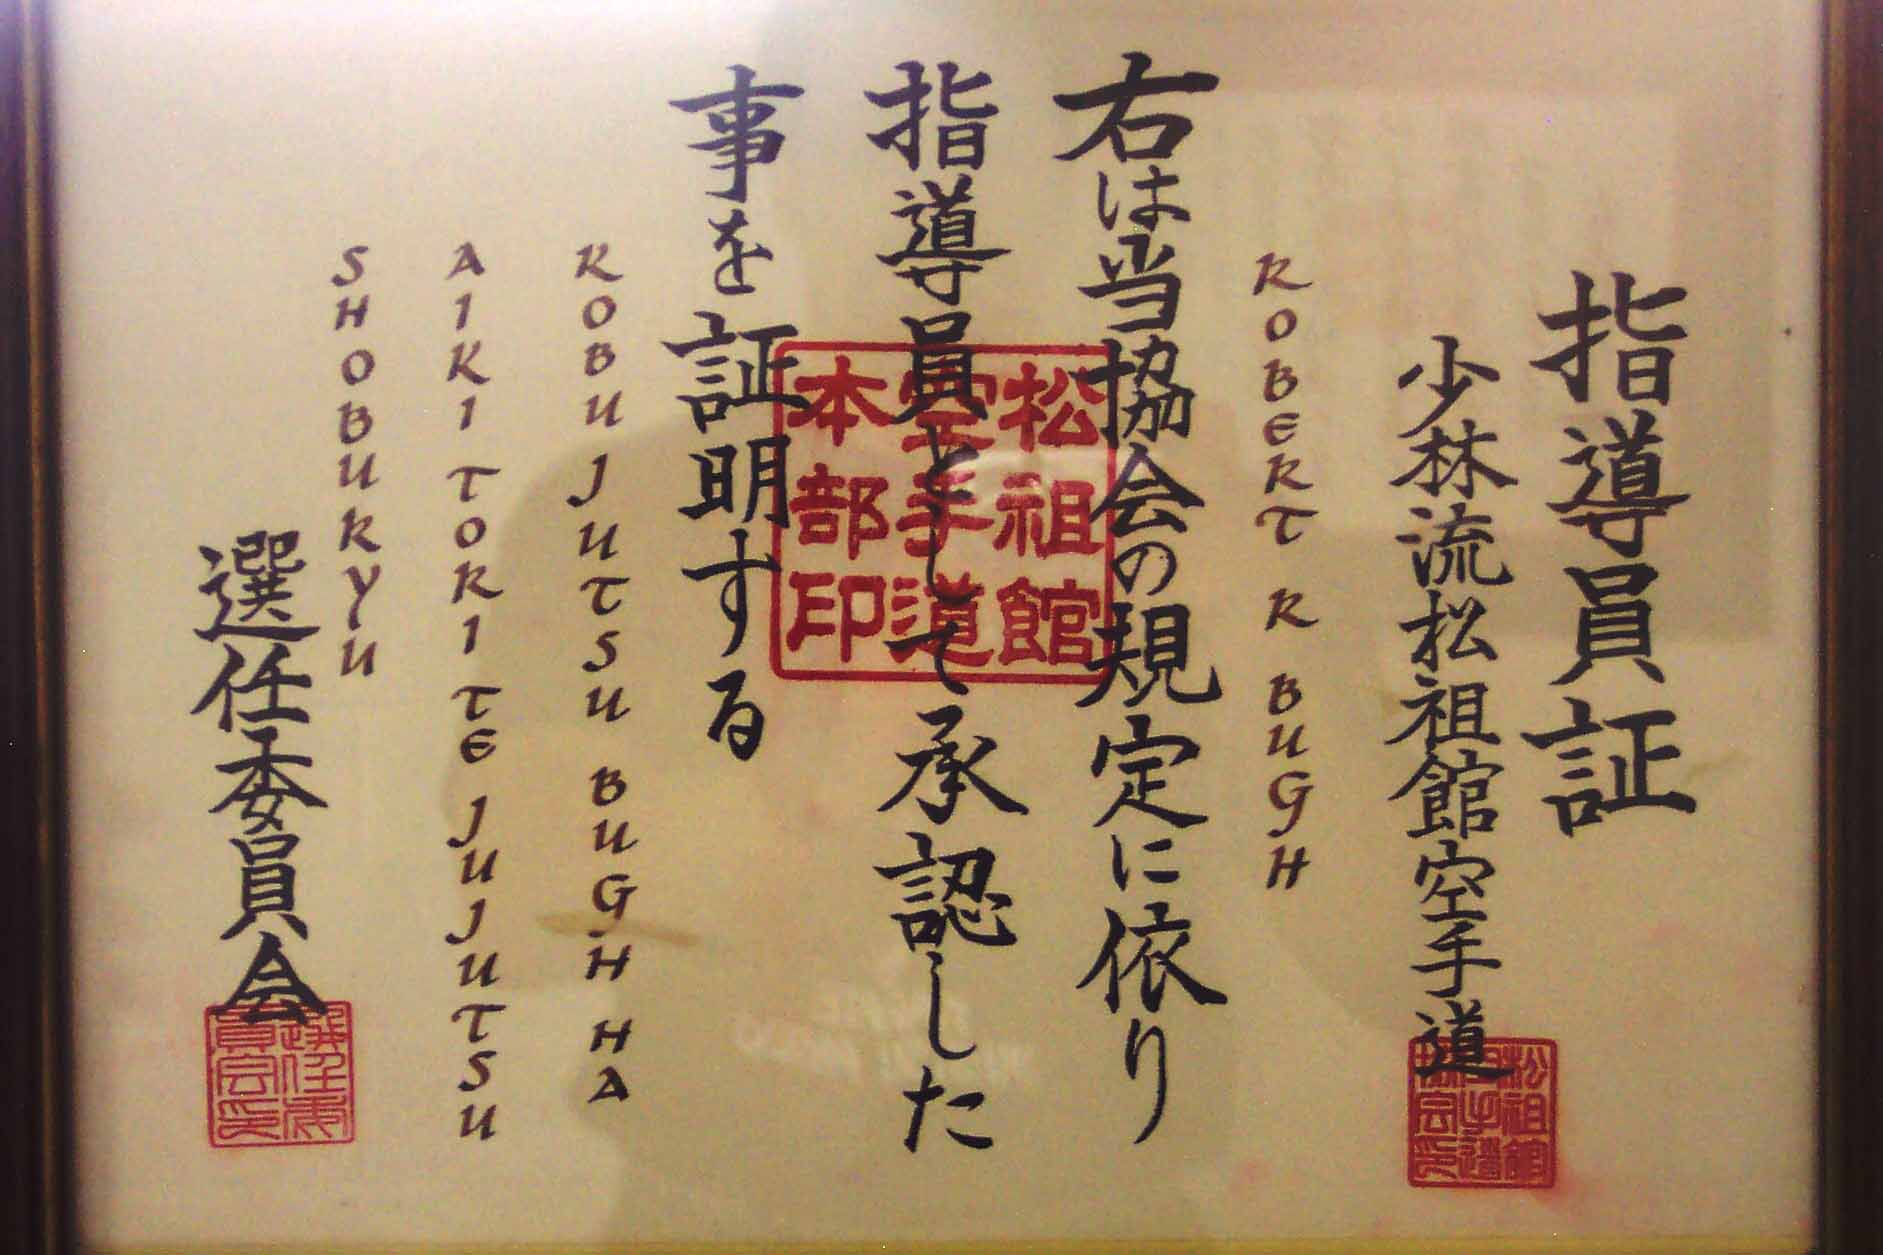 指導員証
少林流松祖館空手道
ROBERT R BUGH
右は当協会の規定に依り
指導員として承認した
事を証明する
KOBU JUTSU BUGH HA
AIKI TORI TE JUJUTSU
SHOBUKYU
選任委員会
松祖館
空手道
本部印
松祖館
空手道
協会印
選任委
員会印